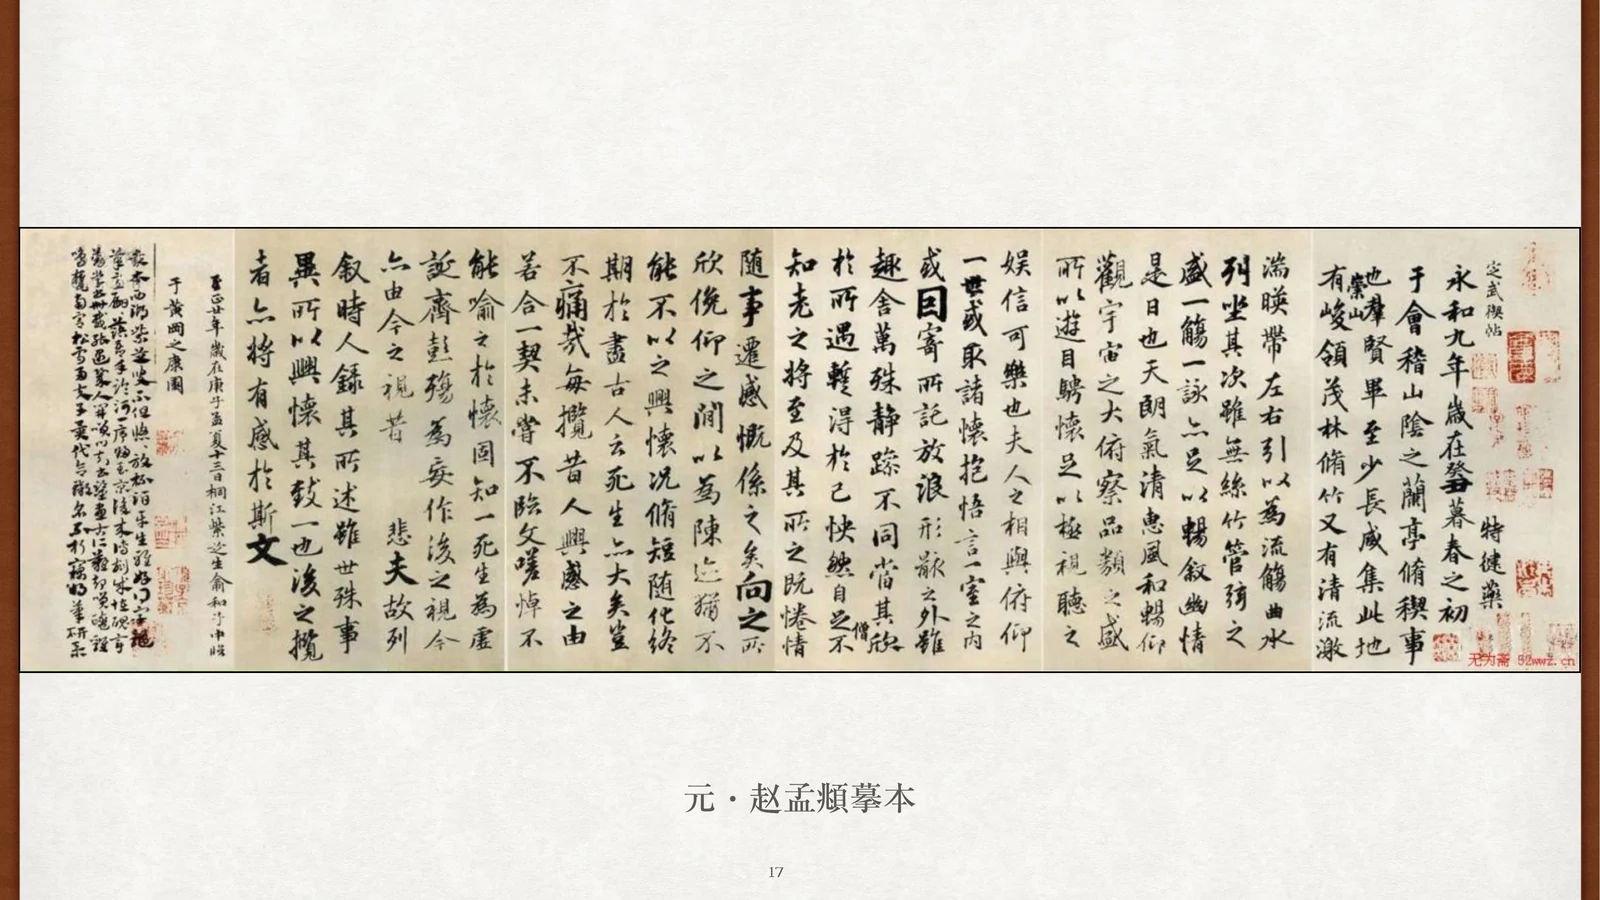 定武禊帖
特健藥
永和九年歲在癸丑暮春之初
于會稽山陰之蘭亭脩稧事
也羣賢畢至少長咸集此地
有崇山峻領茂林脩竹又有清流激
湍暎帶左右引以為流觴曲水
列坐其次雖無絲竹管弦之
盛一觴一詠亦足以暢敘幽情
是日也天朗氣清惠風和暢仰
觀宇宙之大俯察品類之盛
所以遊目騁懷足以極視聽之
娛信可樂也夫人之相與俯仰
一世或取諸懷抱悟言一室之內
或因寄所託放浪形骸之外雖
趣舍萬殊靜躁不同當其欣
於所遇蹔得於己怏然自足不
知老之將至及其所之既惓情
随事遷感慨係之矣向之所
欣俛仰之閒以為陳迹猶不
能不以之興懷況脩短随化終
期於盡古人云死生亦大矣豈
不痛哉每攬昔人興感之由
若合一契未嘗不臨文嗟悼不
能喻之於懷固知一死生為虛
誕齊彭殤為妄作後之視今
亦由今之視昔 悲夫故列
敘時人錄其所述雖世殊事
異所以興懷其致一也後之攬
者亦將有感於斯文
于黃岡之康園
无为斋 52wwz.cn
元·赵孟頫摹本
17